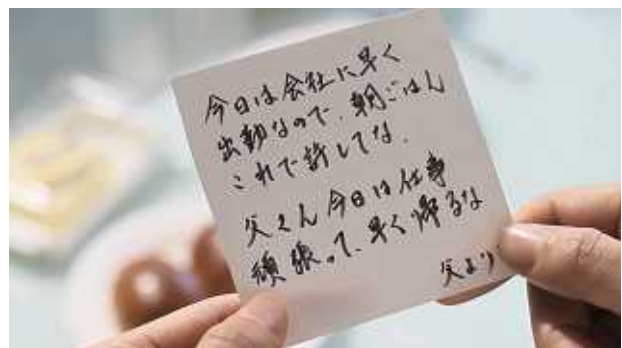 今日は会社に早く
出勤なので、朝ごはん
これで許してな.
父くん今日は仕事
頑張って、早く帰るな
父より